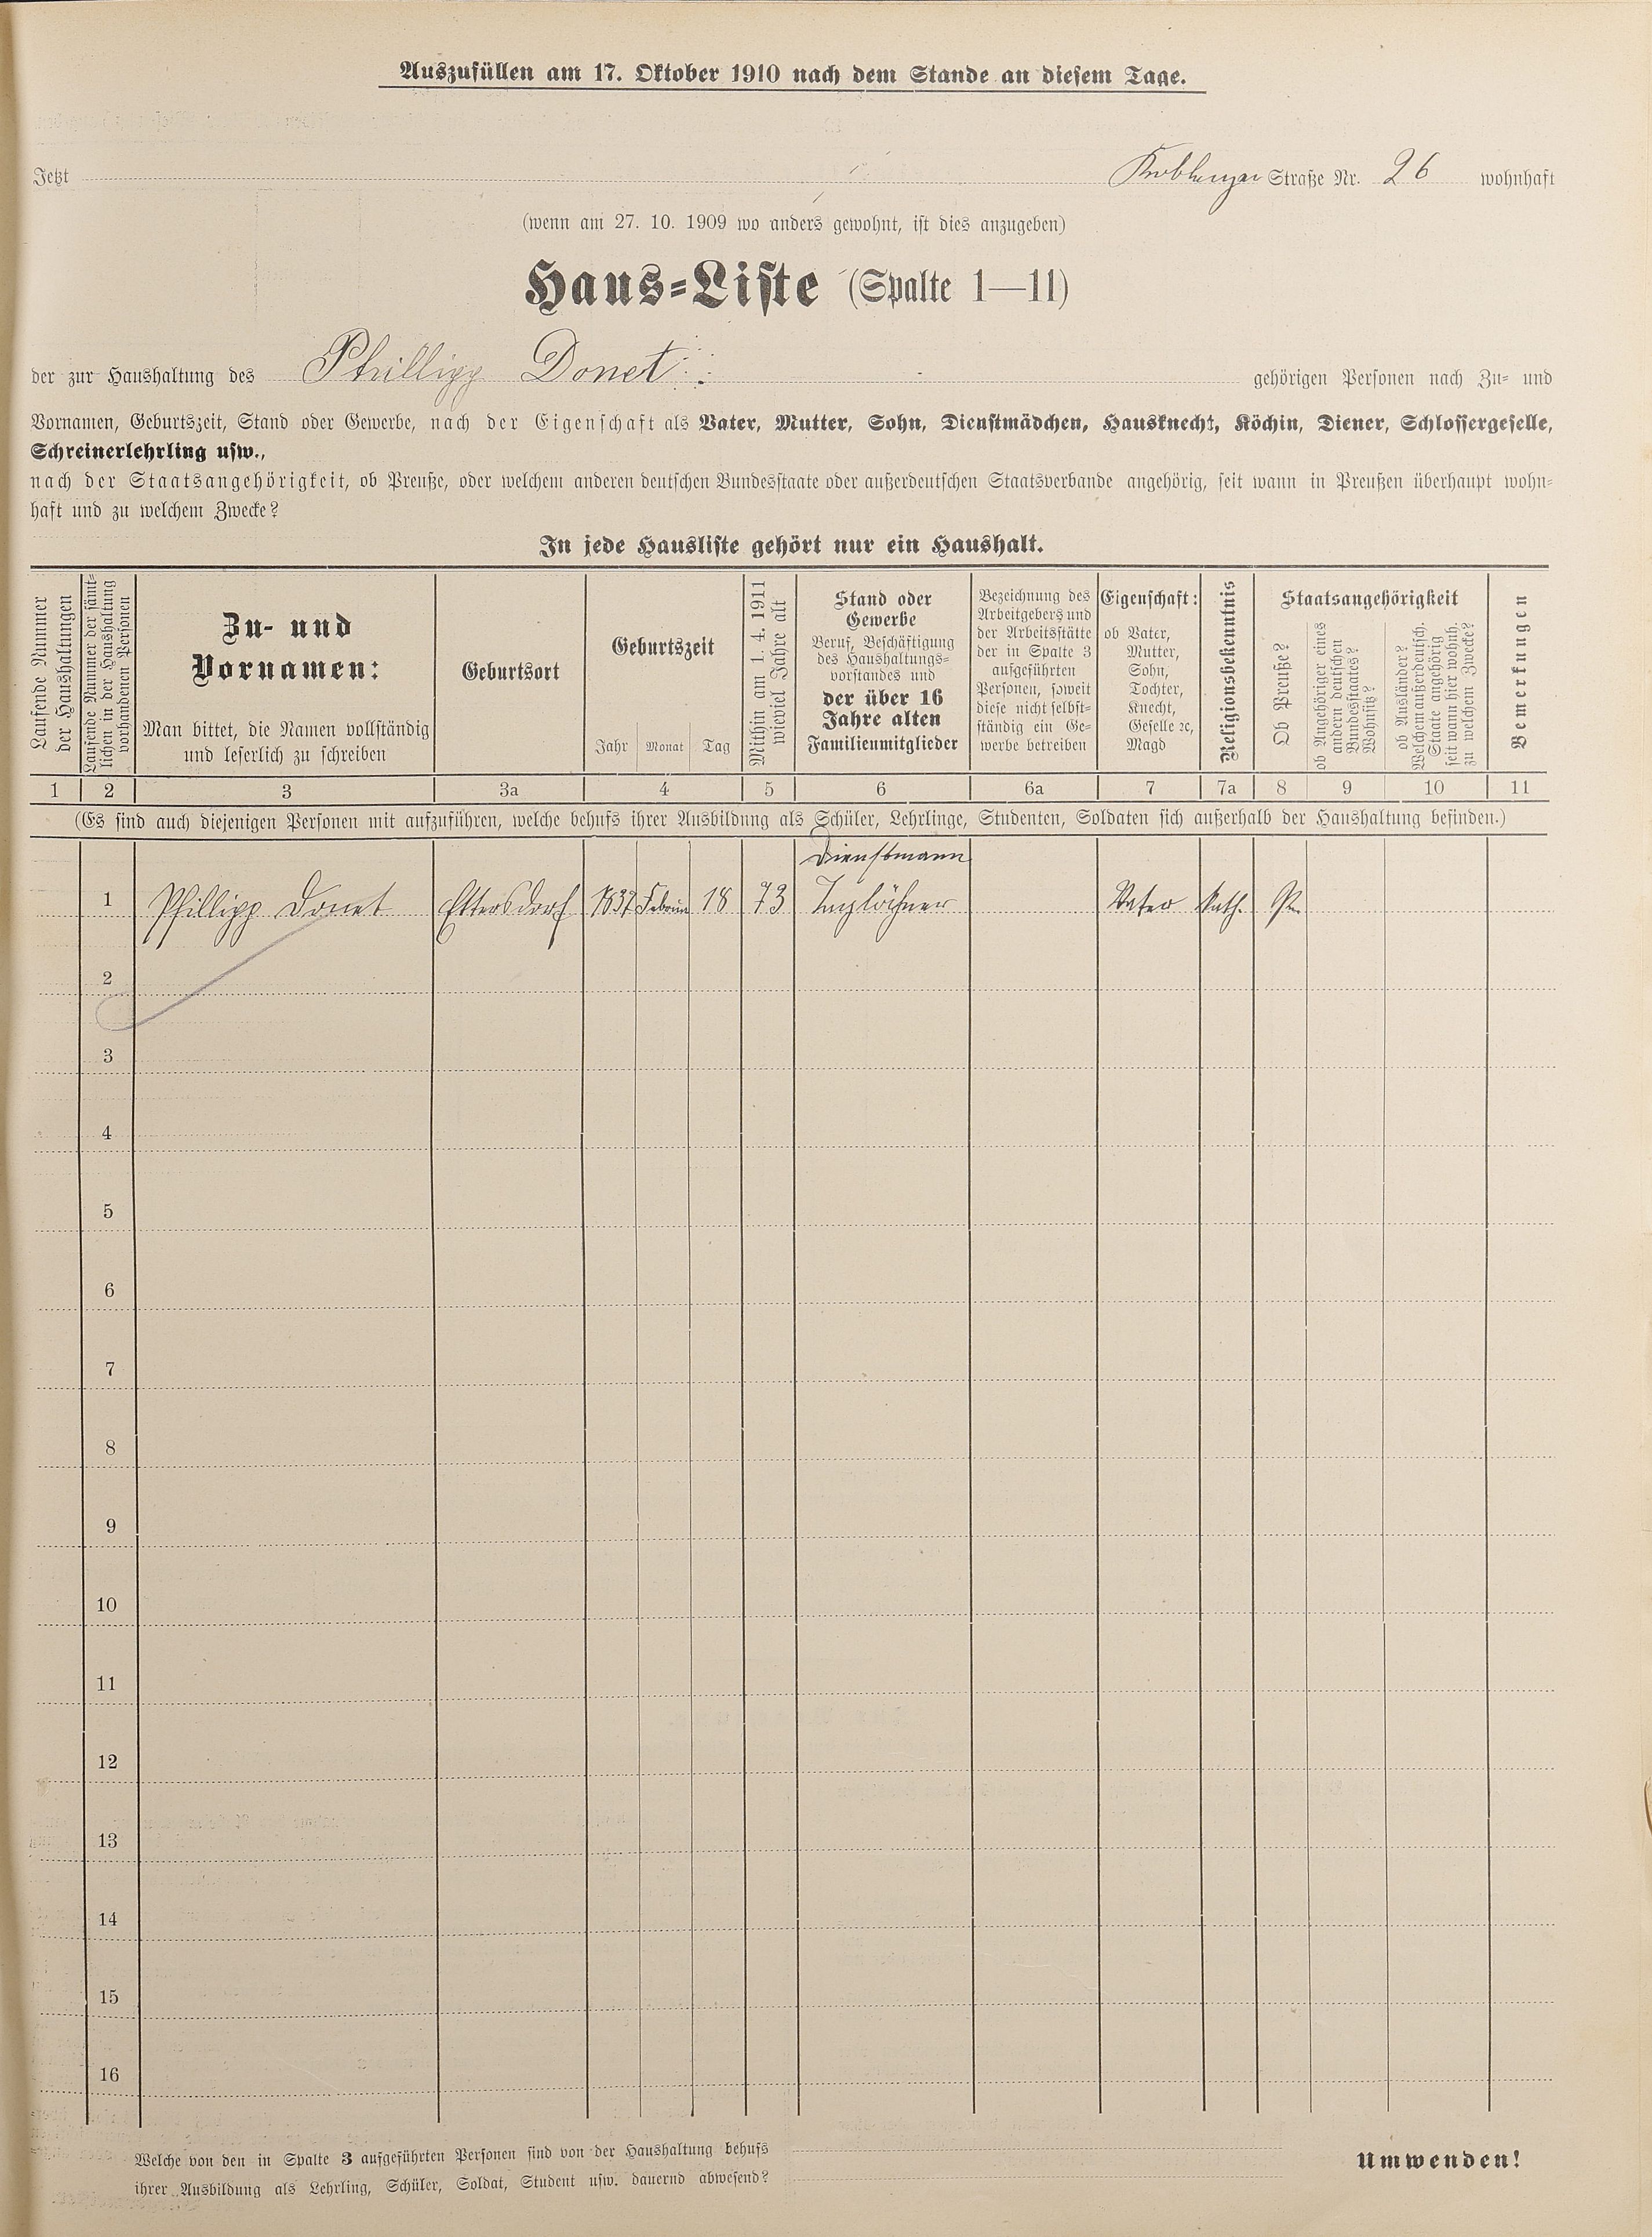 Auszufüllen am 17. Oktober 1910 nach dem Stande an diesem Tage.
Jetzt Koblenzer Straße Nr. 26 wohnhaft
(wenn am 27. 10. 1909 wo anders gewohnt, ist dies anzugeben)
Haus-Liste (Spalte 1—11)
der zur Haushaltung des Phillipp Donet gehörigen Personen nach Zu- und
Vornamen, Geburtszeit, Stand oder Gewerbe, nach der Eigenschaft als Vater, Mutter, Sohn, Dienstmädchen, Hausknecht, Köchin, Diener, Schlossergeselle,
Schreinerlehrling usw.,
nach der Staatsangehörigkeit, ob Preuße, oder welchem anderen deutschen Bundesstaate oder außerdeutschen Staatsverbande angehörig, seit wann in Preußen überhaupt wohn-
haft und zu welchem Zwecke?
In jede Hausliste gehört nur ein Haushalt.
Laufende Nummer
der Haushaltungen
Laufende Nummer der sämt-
lichen in der Haushaltung
vorhandenen Personen
Zu- und
Vornamen:
Man bittet, die Namen vollständig
und leserlich zu schreiben
Geburtsort
Geburtszeit
Jahr Monat Tag
Mithin am 1. 4. 1911
wieviel Jahre alt
Stand oder
Gewerbe
Beruf, Beschäftigung
des Haushaltungs-
vorstandes und
der über 16
Jahre alten
Familienmitglieder
Bezeichnung des
Arbeitgebers und
der Arbeitsstätte
der in Spalte 3
aufgeführten
Personen, soweit
diese nicht selbst-
ständig ein Ge-
werbe betreiben
Eigenschaft:
ob Vater,
Mutter,
Sohn,
Tochter,
Knecht,
Geselle ꝛc,
Magd
Religionsbekenntnis
Staatsangehörigkeit
Ob Preuße?
ob Angehöriger eines
andern deutschen
Bundesstaates?
Wohnsitz?
ob Ausländer?
Welchem außerdeutsch.
Staate angehörig
seit wann hier wohnh.
zu welchem Zwecke?
Bemerkungen
1 2 3 3a 4 5 6 6a 7 7a 8 9 10 11
(Es sind auch diejenigen Personen mit aufzuführen, welche behufs ihrer Ausbildung als Schüler, Lehrlinge, Studenten, Soldaten sich außerhalb der Haushaltung befinden.)
Dienstmann
1 Phillipp Donet Ettersdorf 1837 Februar 18 73 Taglöhner Vater Kath. Pr.
2
3
4
5
6
7
8
9
10
11
12
13
14
15
16
Welche von den in Spalte 3 aufgeführten Personen sind von der Haushaltung behufs
ihrer Ausbildung als Lehrling, Schüler, Soldat, Student usw. dauernd abwesend?
Umwenden!